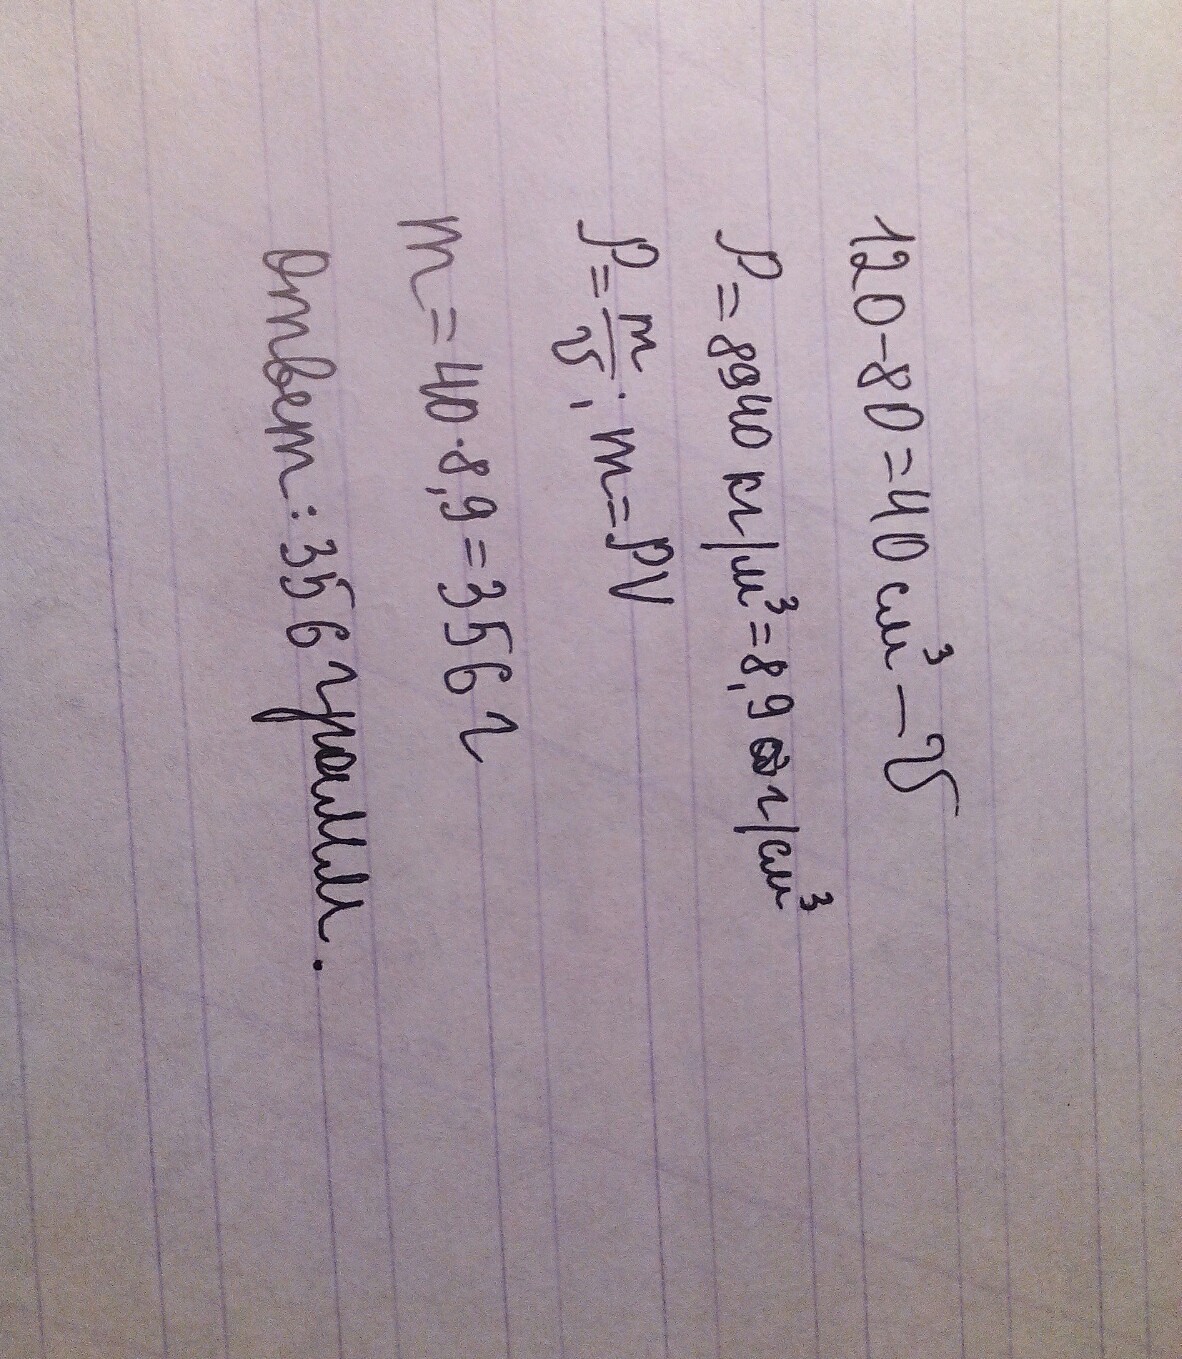 120-80=40 см³ - V
ρ = 8940 кг/м³ = 8,9 г/см³
ρ = m/V; m = ρV
m = 40 · 8,9 = 356 г
Ответ: 356 грамм.